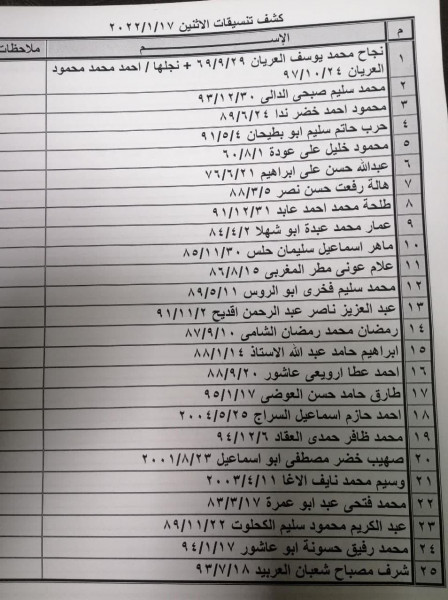 كشف تنسيقات الاثنين ٢٠٢٢/١/١٧
م الإســـــم ملاحظات
١ نجاح محمد يوسف العريان ٦٩/٩/٢٩ + نجلها / احمد محمد محمود
العريان ٩٧/١٠/٢٤
٢ محمد سليم صبحى الدالى ٩٣/١٢/٣٠
٣ محمود احمد خضر ندا ٨٩/٦/٢٤
٤ حرب حاتم سليم ابو بطيحان ٩١/٥/٤
٥ محمود خليل على عودة ٦٠/٨/١
٦ عبدالله حسن على ابراهيم ٧٦/٦/٢١
٧ هالة رفعت حسن نصر ٨٨/٣/٥
٨ طلحة محمد احمد عابد ٩١/١٢/٣١
٩ عمار محمد عبدة ابو شهلا ٨٤/٤/٢
١٠ ماهر اسماعيل سليمان حلس ٨٥/١١/٣٠
١١ علام عونى مطر المغربى ٨٦/٨/١٥
١٢ محمد سليم فخرى ابو الروس ٨٩/٥/١١
١٣ عبد العزيز ناصر عبد الرحمن اقديح ٩١/١١/٢
١٤ رمضان محمد رمضان الشامى ٨٧/٩/١٠
١٥ ابراهيم حامد عبد الله الاستاذ ٨٨/١/١٤
١٦ احمد عطا ارويعى عاشور ٨٨/٩/٢٠
١٧ طارق حامد حسن العوضى ٩٥/١/١٧
١٨ احمد حازم اسماعيل السراج ٢٠٠٤/٥/٢٥
١٩ محمد ظافر حمدى العقاد ٩٤/١٢/٦
٢٠ صهيب خضر مصطفى ابو اسماعيل ٢٠٠١/٨/٢٣
٢١ وسيم محمد نايف الاغا ٢٠٠٣/٤/١١
٢٢ محمد فتحى عبد ابو عمرة ٨٣/٣/١٧
٢٣ عبد الكريم محمود سليم الكحلوت ٨٩/١١/٢٢
٢٤ محمد رفيق حسونة ابو عاشور ٩٤/١/١٧
٢٥ شرف مصباح شعبان العربيد ٩٣/٧/١٨